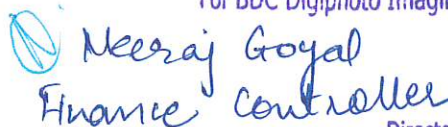 For BDC Digiphoto Imagin
Neeraj Goyal
Finance Controller
Director